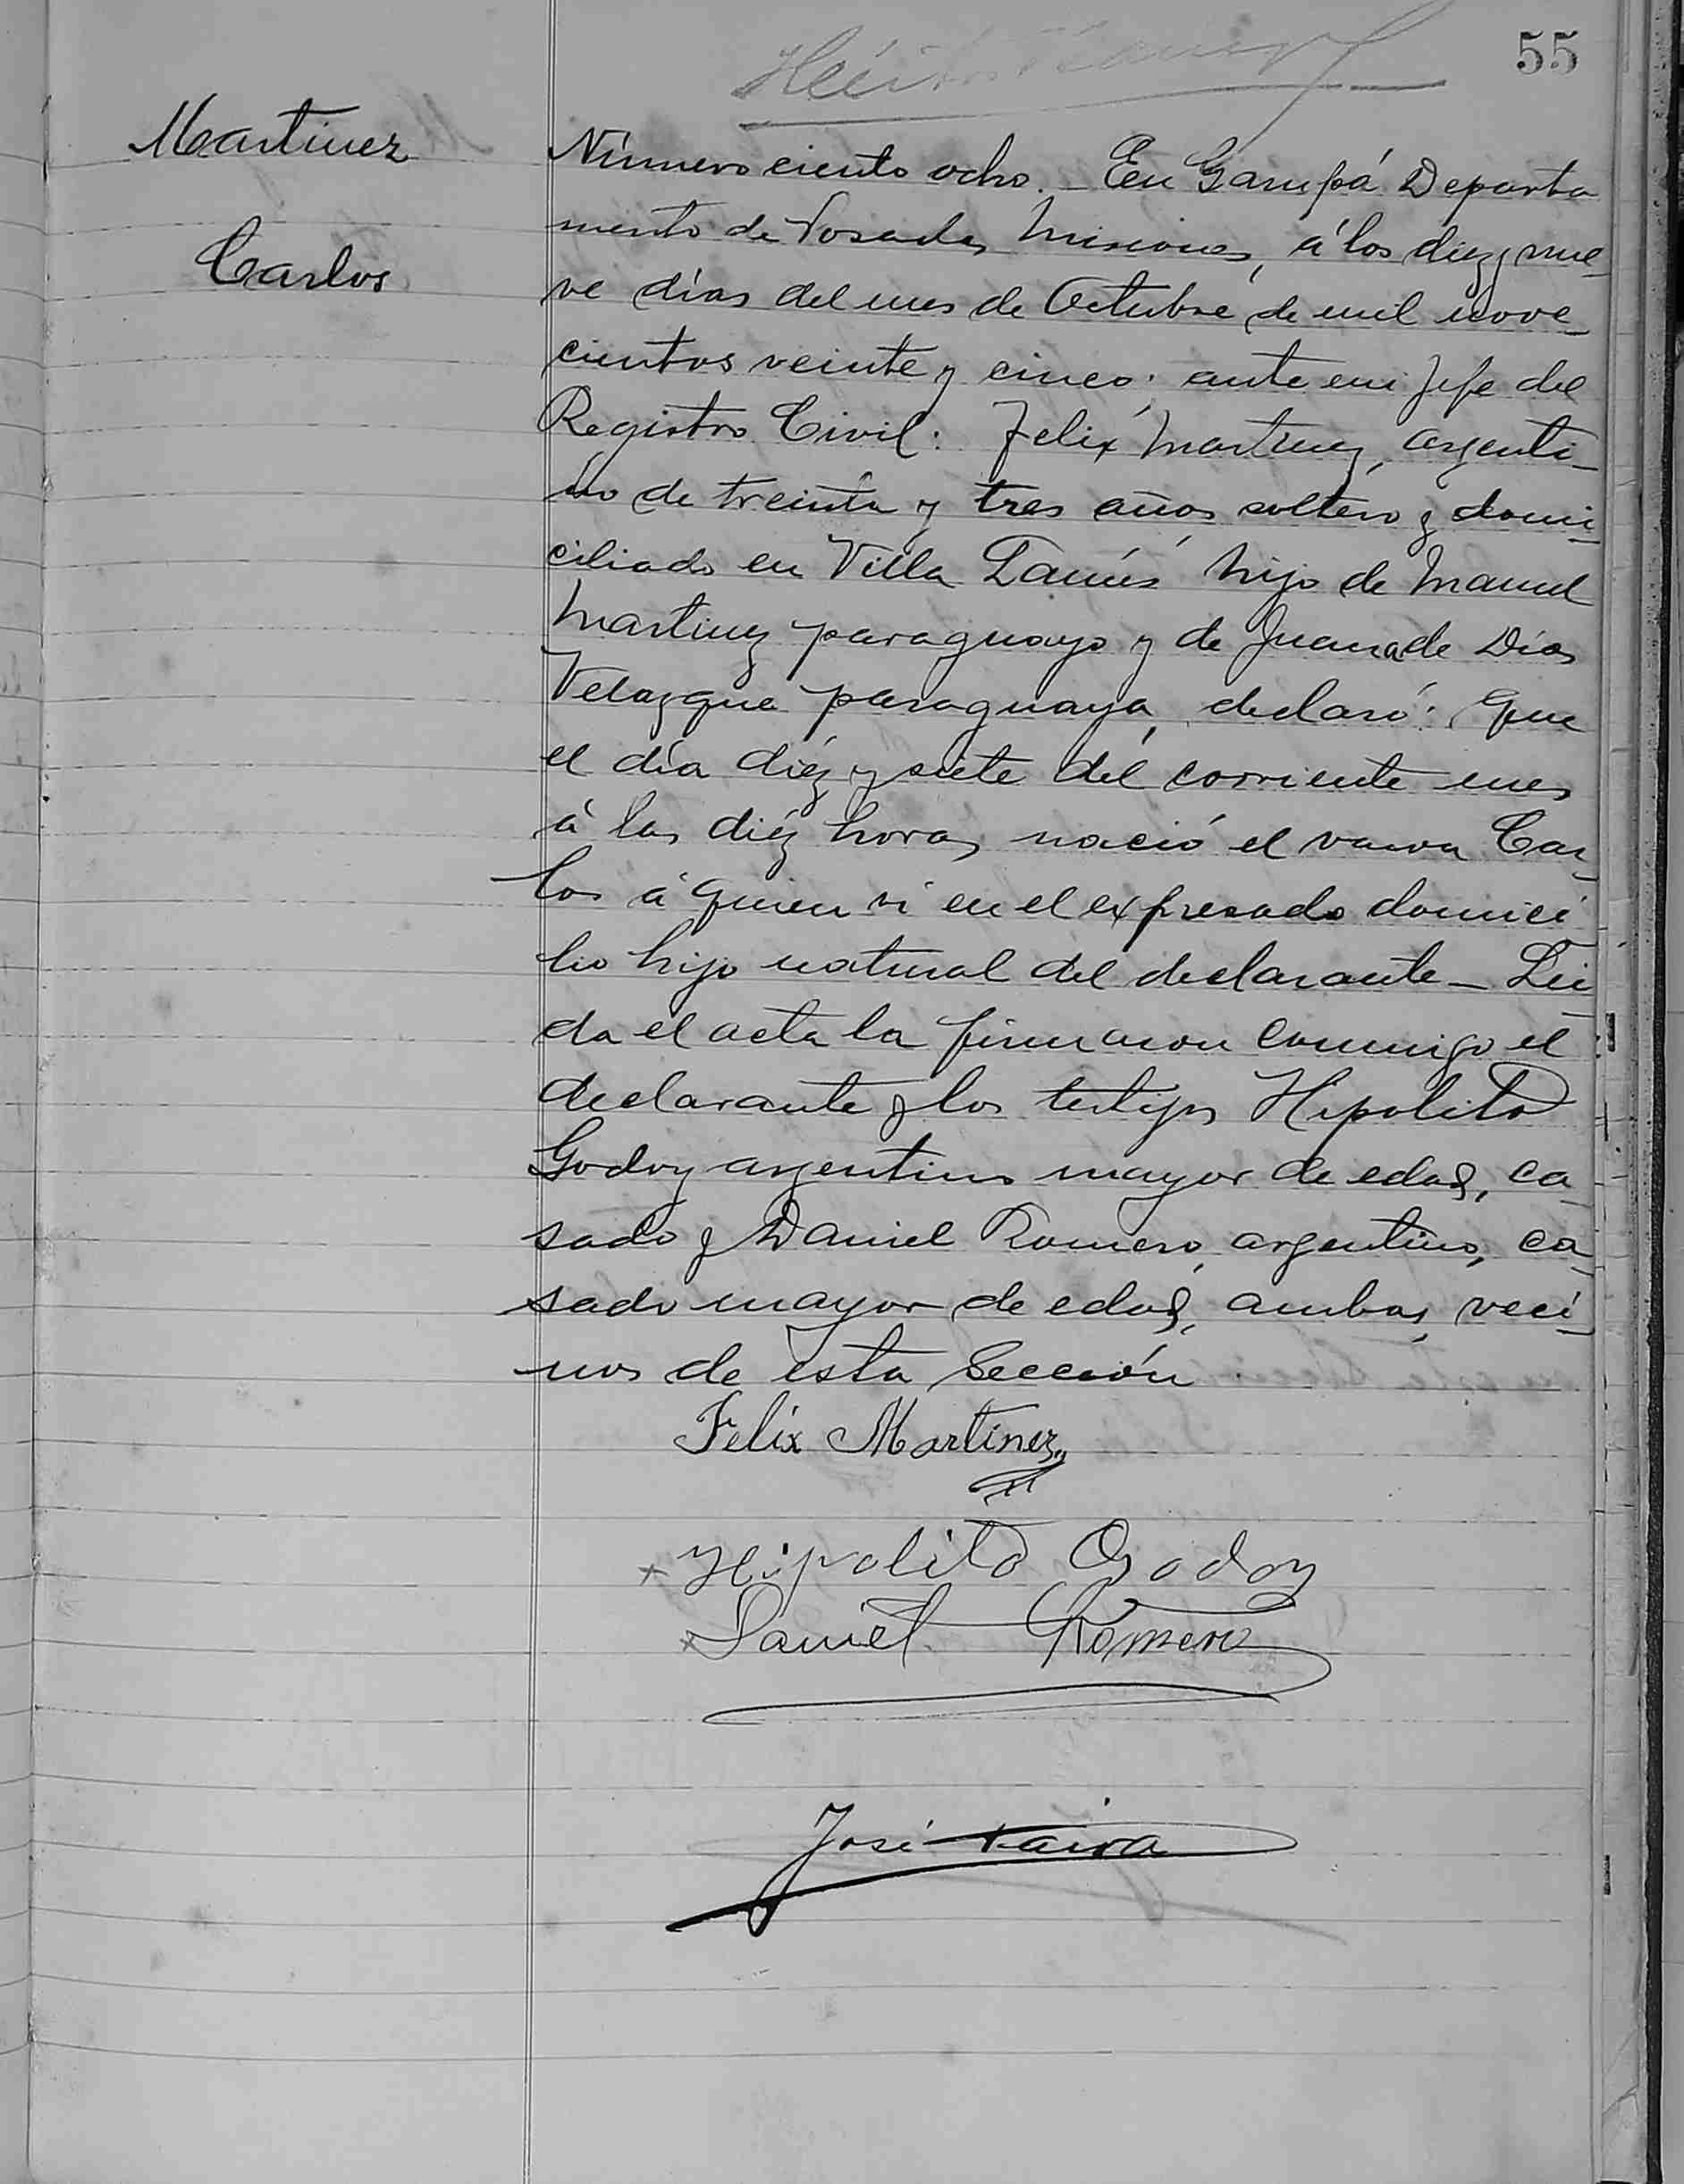 55
Martinez
Carlos
Número ciento ocho. _ En Garupá Departa
mento de Posadas Misiones, á los diez y nue_
ve días del mes de Octubre de mil nove_
cientos veinte y cinco; ante mi Jefe del
Registro Civil: Felix Martinez, argenti_
no de treinta y tres años soltero y domi_
ciliado en Villa Lanús hijo de Manuel
Martinez paraguayo y de Juana de Dios
Velazque paraguaya, declaró: Que
el día diéz y siete del corriente mes
á las diéz horas nació el varon Car_
los á quien vi en el expresado domici
lio hijo natural del declarante _ Lei
da el acta la firmaron conmigo el
declarante y los testigos Hipolito
Godoy argentino mayor de edad, ca_
sado y Daniel Romero, argentino, ca_
sado mayor de edad, ambos veci_
nos de esta Sección
Felix Martinez
Hipolito Godoy
Daniel Romero
José